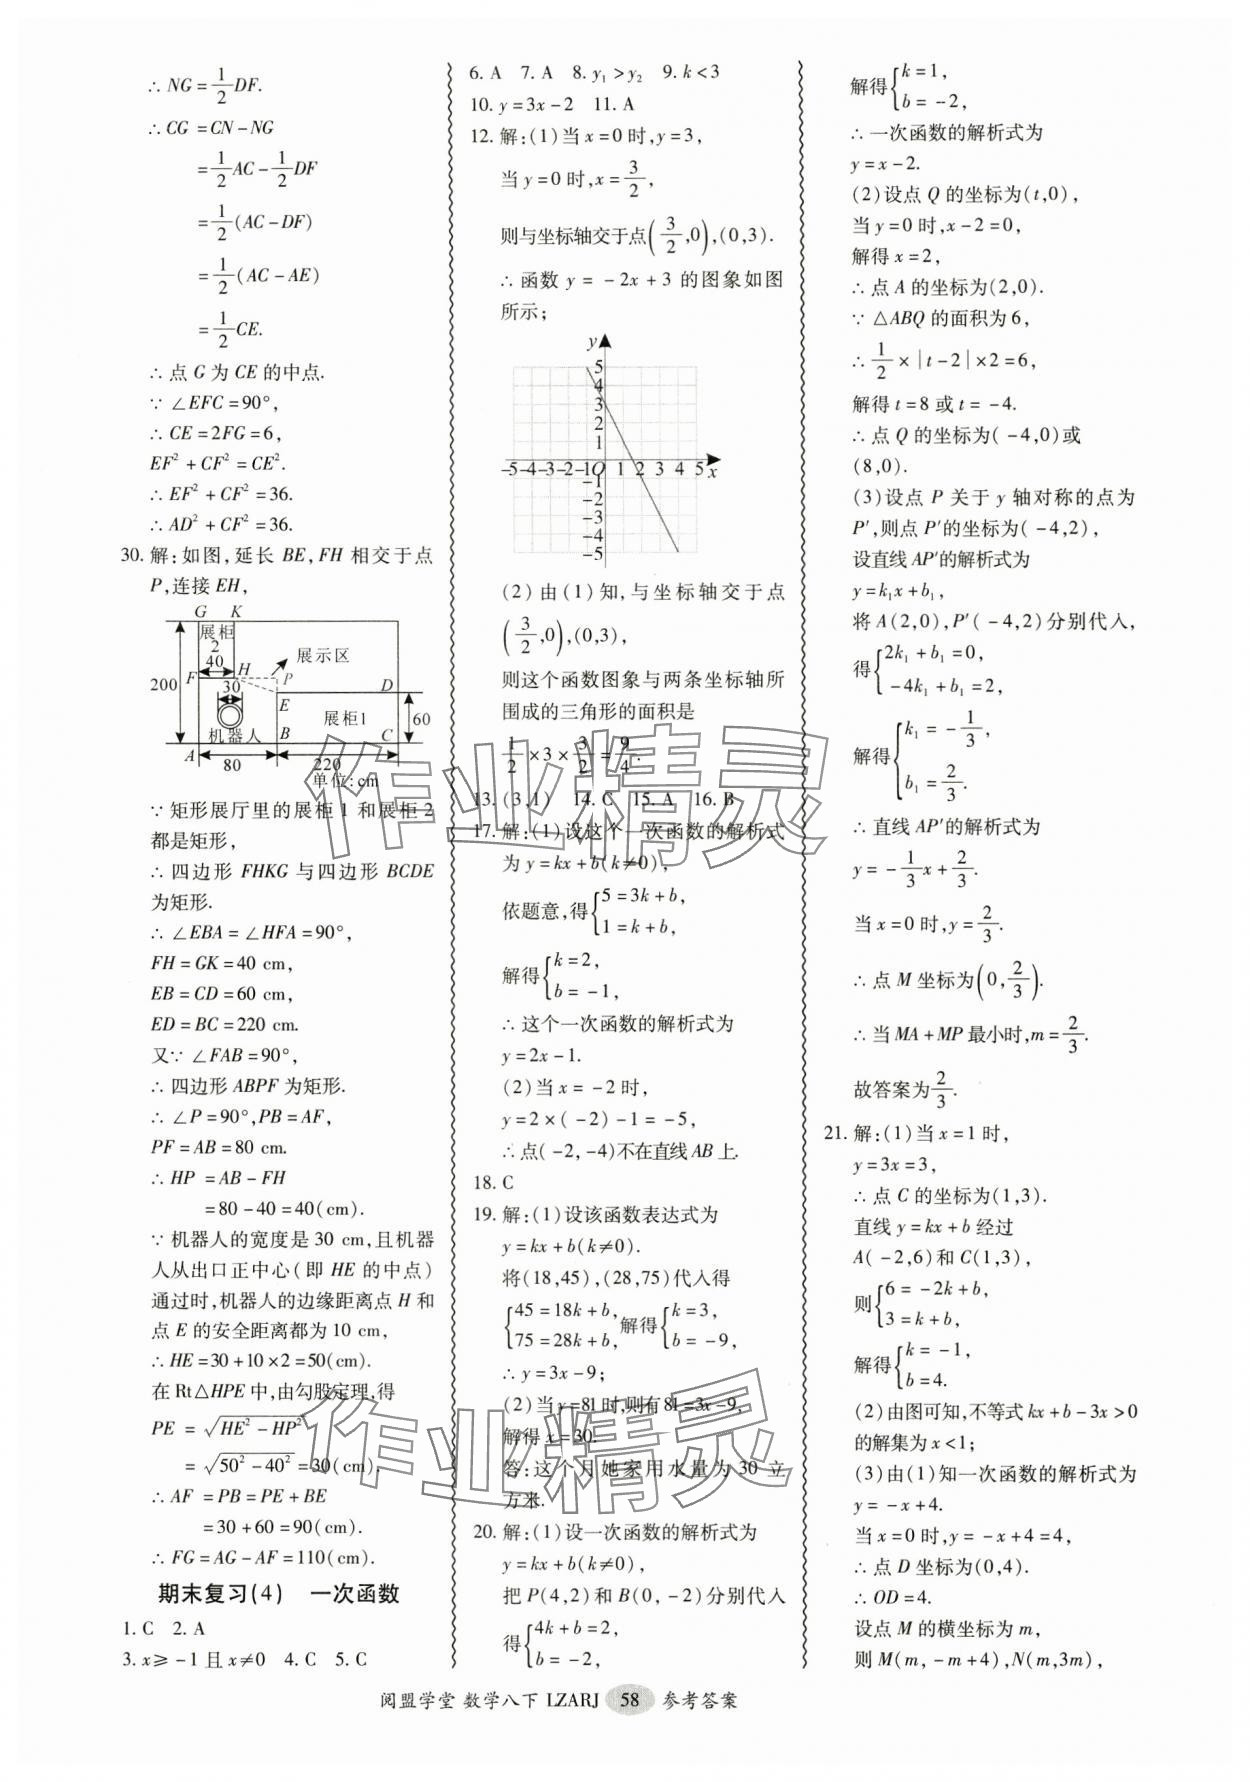 ∴ NG=1/2DF.
∴ CG=CN-NG
=1/2AC-1/2DF
=1/2(AC-DF)
=1/2(AC-AE)
=1/2CE.
∴ 点 G 为 CE 的中点.
∵ ∠EFC=90°,
∴ CE=2FG=6,
EF²+CF²=CE².
∴ EF²+CF²=36.
∴ AD²+CF²=36.
30. 解:如图,延长 BE,FH 相交于点
P,连接 EH,
G K
展柜
2
40
H
展示区
F
P
200
30
E
D
展柜1
60
机器人
B
C
A
80
220
单位:cm
∵ 矩形展厅里的展柜 1 和展柜 2
都是矩形,
∴ 四边形 FHKG 与四边形 BCDE
为矩形.
∴ ∠EBA=∠HFA=90°,
FH=GK=40 cm,
EB=CD=60 cm,
ED=BC=220 cm.
又∵ ∠FAB=90°,
∴ 四边形 ABPF 为矩形.
∴ ∠P=90°,PB=AF,
PF=AB=80 cm.
∴ HP=AB-FH
=80-40=40(cm).
∵ 机器人的宽度是 30 cm,且机器
人从出口正中心(即 HE 的中点)
通过时,机器人的边缘距离点 H 和
点 E 的安全距离都为 10 cm,
∴ HE=30+10×2=50(cm).
在 Rt△HPE 中,由勾股定理,得
PE=√(HE²-HP²)
=√(50²-40²)=30(cm).
∴ AF=PB=PE+BE
=30+60=90(cm).
∴ FG=AG-AF=110(cm).
期末复习(4) 一次函数
1. C 2. A
3. x≥-1 且 x≠0 4. C 5. C
6. A 7. A 8. y₁>y₂ 9. k<3
10. y=3x-2 11. A
12. 解:(1)当 x=0 时,y=3,
当 y=0 时,x=3/2,
则与坐标轴交于点(3/2,0),(0,3).
∴ 函数 y=-2x+3 的图象如图
所示;
y
5
4
3
2
1
-5-4-3-2-1O 1 2 3 4 5 x
-1
-2
-3
-4
-5
(2)由(1)知,与坐标轴交于点
(3/2,0),(0,3),
则这个函数图象与两条坐标轴所
围成的三角形的面积是
1/2×3×3/2=9/4.
13. (3,1) 14. C 15. A 16. B
17. 解:(1)设这个一次函数的解析式
为 y=kx+b(k≠0),
依题意,得{5=3k+b,
1=k+b,
解得{k=2,
b=-1,
∴ 这个一次函数的解析式为
y=2x-1.
(2)当 x=-2 时,
y=2×(-2)-1=-5,
∴ 点(-2,-4)不在直线 AB 上.
18. C
19. 解:(1)设该函数表达式为
y=kx+b(k≠0).
将(18,45),(28,75)代入得
{45=18k+b, 解得{k=3,
75=28k+b, b=-9,
∴ y=3x-9;
(2)当 y=81 时,则有 81=3x-9,
解得 x=30.
答:这个月她家用水量为 30 立
方米.
20. 解:(1)设一次函数的解析式为
y=kx+b(k≠0),
把 P(4,2)和 B(0,-2)分别代入
得{4k+b=2,
b=-2,
解得{k=1,
b=-2,
∴ 一次函数的解析式为
y=x-2.
(2)设点 Q 的坐标为(t,0),
当 y=0 时,x-2=0,
解得 x=2,
∴ 点 A 的坐标为(2,0).
∵ △ABQ 的面积为 6,
∴ 1/2×|t-2|×2=6,
解得 t=8 或 t=-4.
∴ 点 Q 的坐标为(-4,0)或
(8,0).
(3)设点 P 关于 y 轴对称的点为
P′,则点 P′的坐标为(-4,2),
设直线 AP′的解析式为
y=k₁x+b₁,
将 A(2,0),P′(-4,2)分别代入,
得{2k₁+b₁=0,
-4k₁+b₁=2,
解得{k₁=-1/3,
b₁=2/3.
∴ 直线 AP′的解析式为
y=-1/3x+2/3.
当 x=0 时,y=2/3.
∴ 点 M 坐标为(0,2/3).
∴ 当 MA+MP 最小时,m=2/3.
故答案为2/3.
21. 解:(1)当 x=1 时,
y=3x=3,
∴ 点 C 的坐标为(1,3).
直线 y=kx+b 经过
A(-2,6)和 C(1,3),
则{6=-2k+b,
3=k+b,
解得{k=-1,
b=4.
(2)由图可知,不等式 kx+b-3x>0
的解集为 x<1;
(3)由(1)知一次函数的解析式为
y=-x+4.
当 x=0 时,y=-x+4=4,
∴ 点 D 坐标为(0,4).
∴ OD=4.
设点 M 的横坐标为 m,
则 M(m,-m+4),N(m,3m),
阅盟学堂 数学八下 LZARJ 58 参考答案
作业精灵
作业精灵